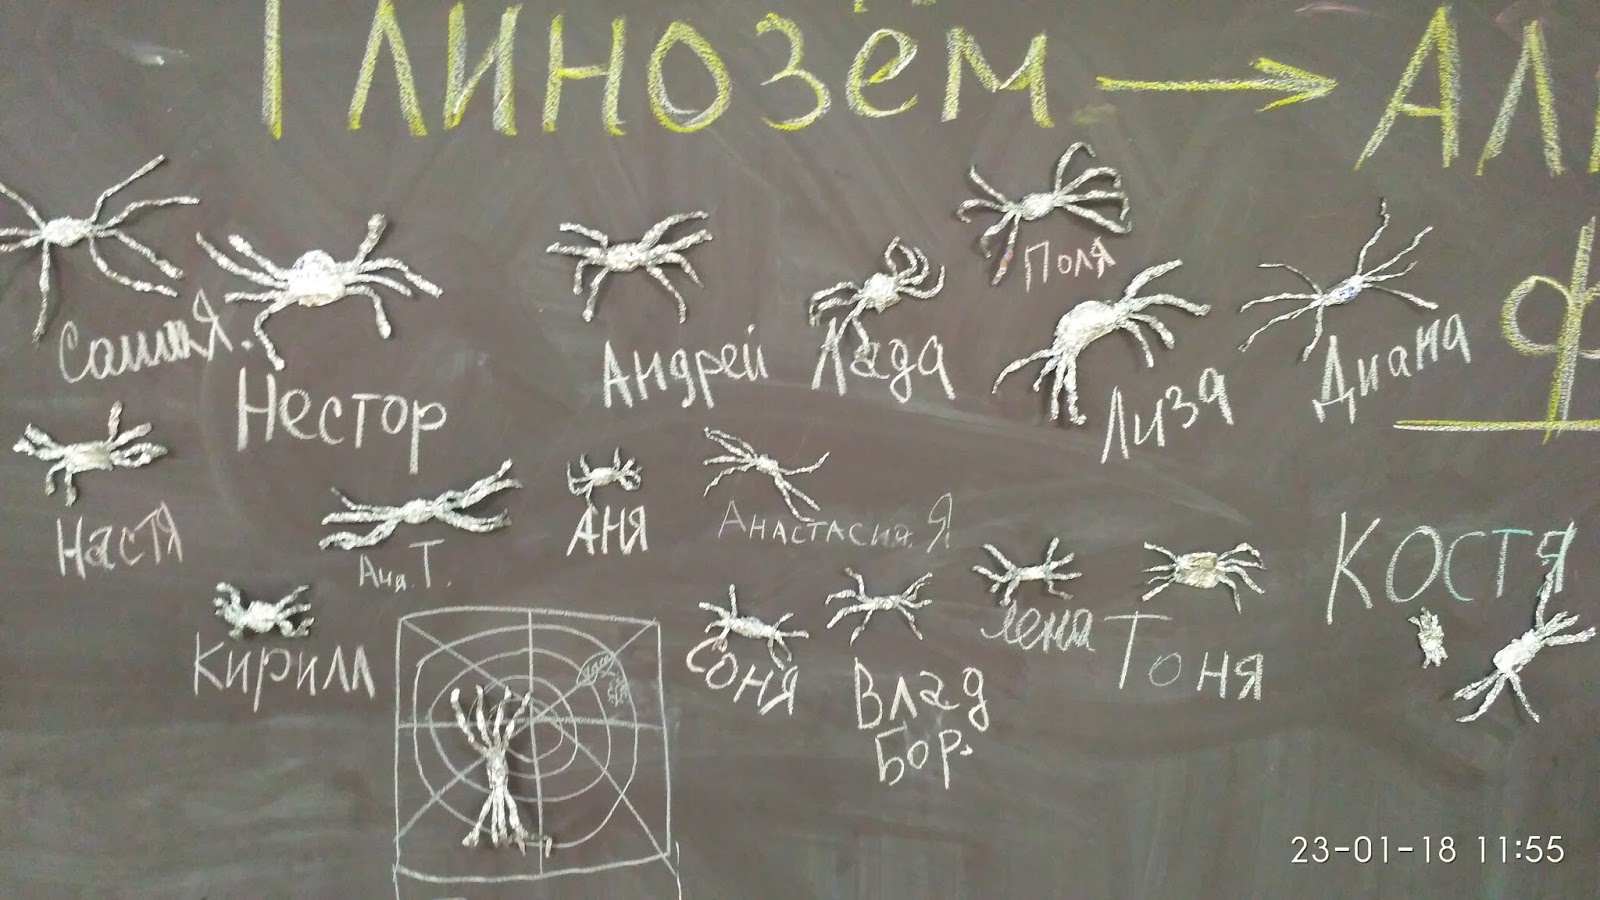 Глинозём → АЛ
Поля
СашаЯ.
Нестор
Андрей
Лада
Лиза
Диана
Ф
Настя
Аня.Т.
Аня
Анастасия.Я
Костя
Кирилл
Соня
Влад
Бор.
Лена
Тоня
23-01-18 11:55